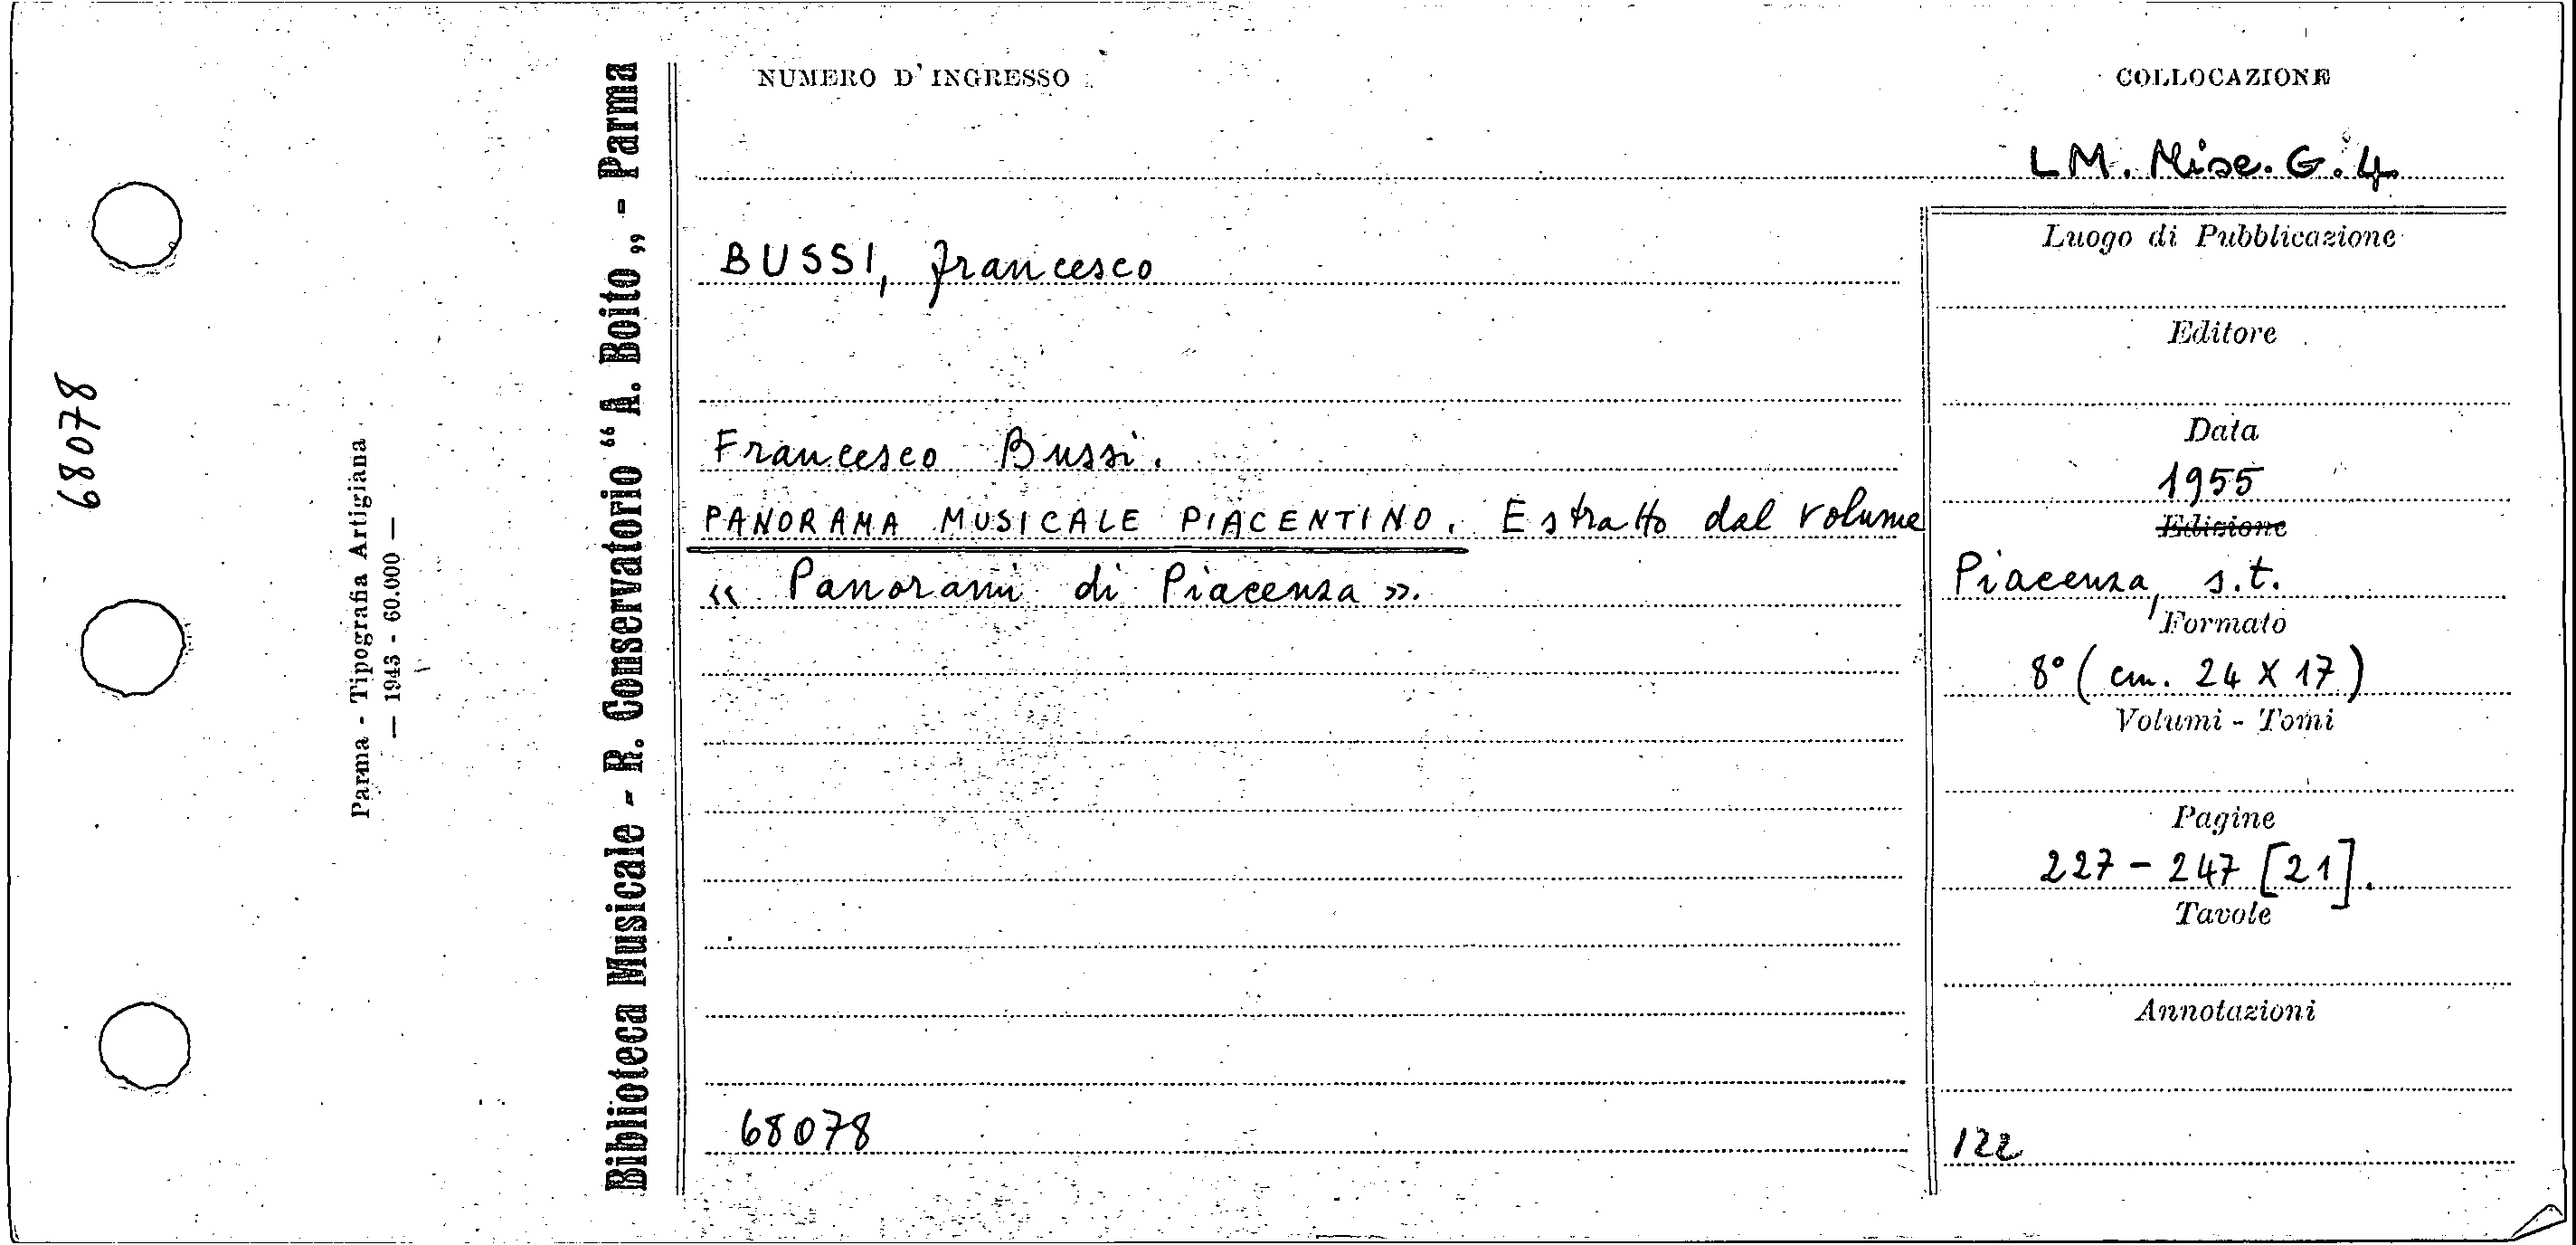 68078
Parma - Tipografia Artigiana
— 1943 - 60.000 —
Biblioteca Musicale - R. Conservatorio “A. Boito„ - Parma
NUMERO D'INGRESSO
COLLOCAZIONE
LM. Misc. G. 4.
BUSSI, Francesco
Francesco Bussi.
PANORAMA MUSICALE PIACENTINO. Estratto dal volume
« Panorami di Piacenza ».
68078
Luogo di Pubblicazione
Editore
Data
1955
Edizione
Piacenza, s.t.
Formato
8° ( cm. 24 X 17 )
Volumi - Tomi
Pagine
227 - 247 [21].
Tavole
Annotazioni
122